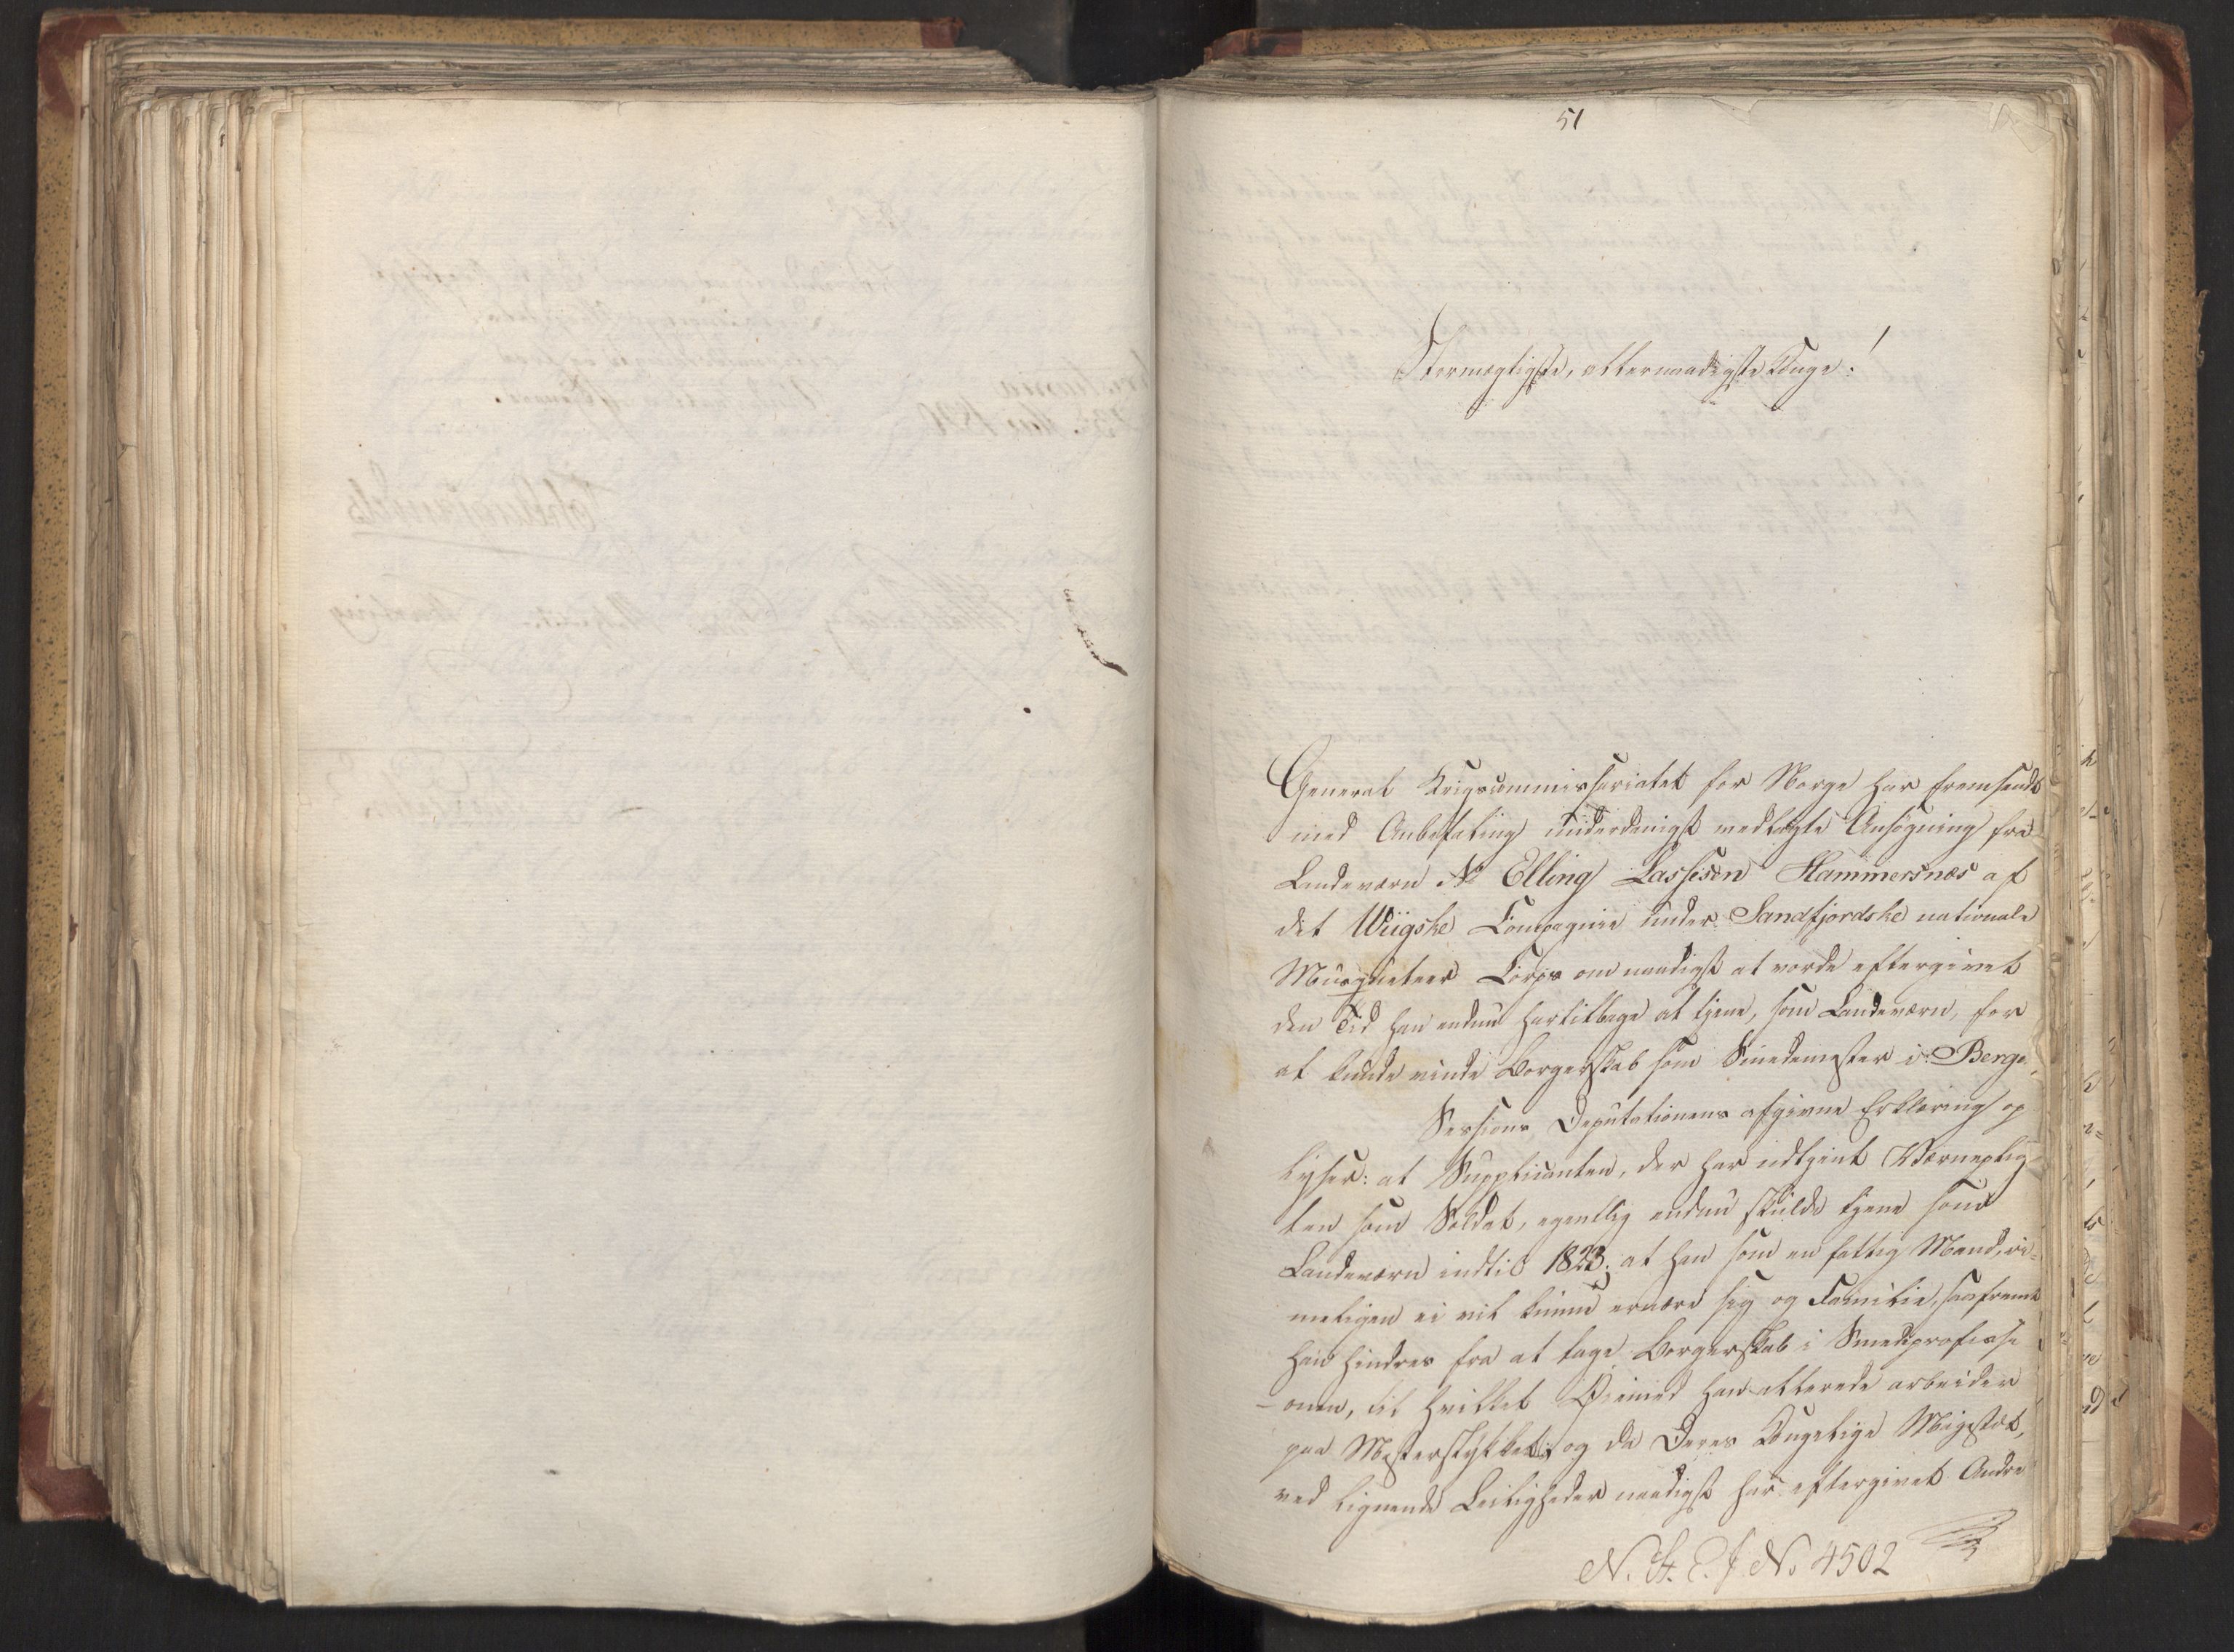 51
Stormægtigste, allernaadigste Konge!
General Krigscommissariatet for Norge har fremsendt
med Anbefaling underdanigst medlagte Ansøgning fra
Landeværn No Elling Lassesøn Hammersnæs af
det Wiigske Compagnie under Sandfjordske nationale
Musqueteer Corps om naadigst at vorde eftergivet
den Tid han endnu har tilbage at tjene, som Landeværn, for
at kunde vinde Borgerskab som Smedemester i Bergen,
Sessions Deputationens afgivne Erklæring op
lyser: at Supplicanten, der har udtjent Værneplig-
ten som Soldat, egentlig endnu skulde tjene som
Landeværn indtil 1823; at han som en fattig Mand, ri-
meligen ei vil kunne ernære sig og Familie, saafremt
han hindres fra at tage Borgerskab i Smedeprofessi
-onen, til hvilket Øiemed han allerede arbeider
paa Mesterstykket; og da Deres Kongelige Majestæt,
ved lignende Leiligheder naadigst har eftergivet Andre
No 4502